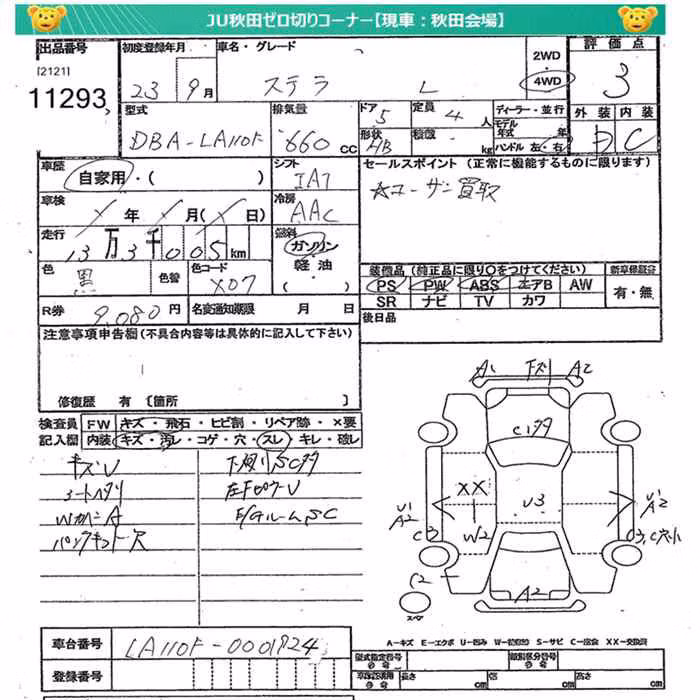 JU秋田ゼロ切りコーナー【現車：秋田会場】
出品番号 初度登録年月 車名・グレード 評価点
[2121]
11293
23 9月 ステラ L 2WD 4WD 3
型式 排気量 ドア 定員 ディーラー・並行 外装 内装
DBA-LA110F 660cc 5 4人 モデル年式 年 D C
形状 HB 積載 kg ハンドル 左・右
車歴 シフト セールスポイント (正常に機能するものに限ります)
自家用・( ) IAT ☆ユーザー買取
車検 冷房
年 月 ( 日) AAC
走行 燃料
13万3千005km ガソリン
軽油
色 黒 色替 色コード X07
装備品 (純正品に限り〇をつけてください) 新車保証書
PS PW ABS エアB AW 有・無
SR ナビ TV カワ
R券 9,080円 名変通知期限 月 日 後日品
注意事項申告欄(不具合内容等は具体的に記入して下さい)
修復歴 有 〔箇所 〕
検査員 FW キズ・飛石・ヒビ割・リペア跡・×要
記入欄 内装 キズ・汚レ・コゲ・穴・スレ・キレ・破レ
キズU 下廻りSCタ
シートヘタリ
パンクキット欠 F/GルームSC
A1 下スリ A2
C1タ
XX U3
U1 A2 C3 W2
U1 A2
C2 A2
スペア
A－キズ E－エクボ U－凹み W－補修跡 S－サビ C－腐食 XX－交換済
車台番号 LA110F-0001824
型式指定番号 類別区分番号
登録番号
長さ cm 巾 cm 高さ cm